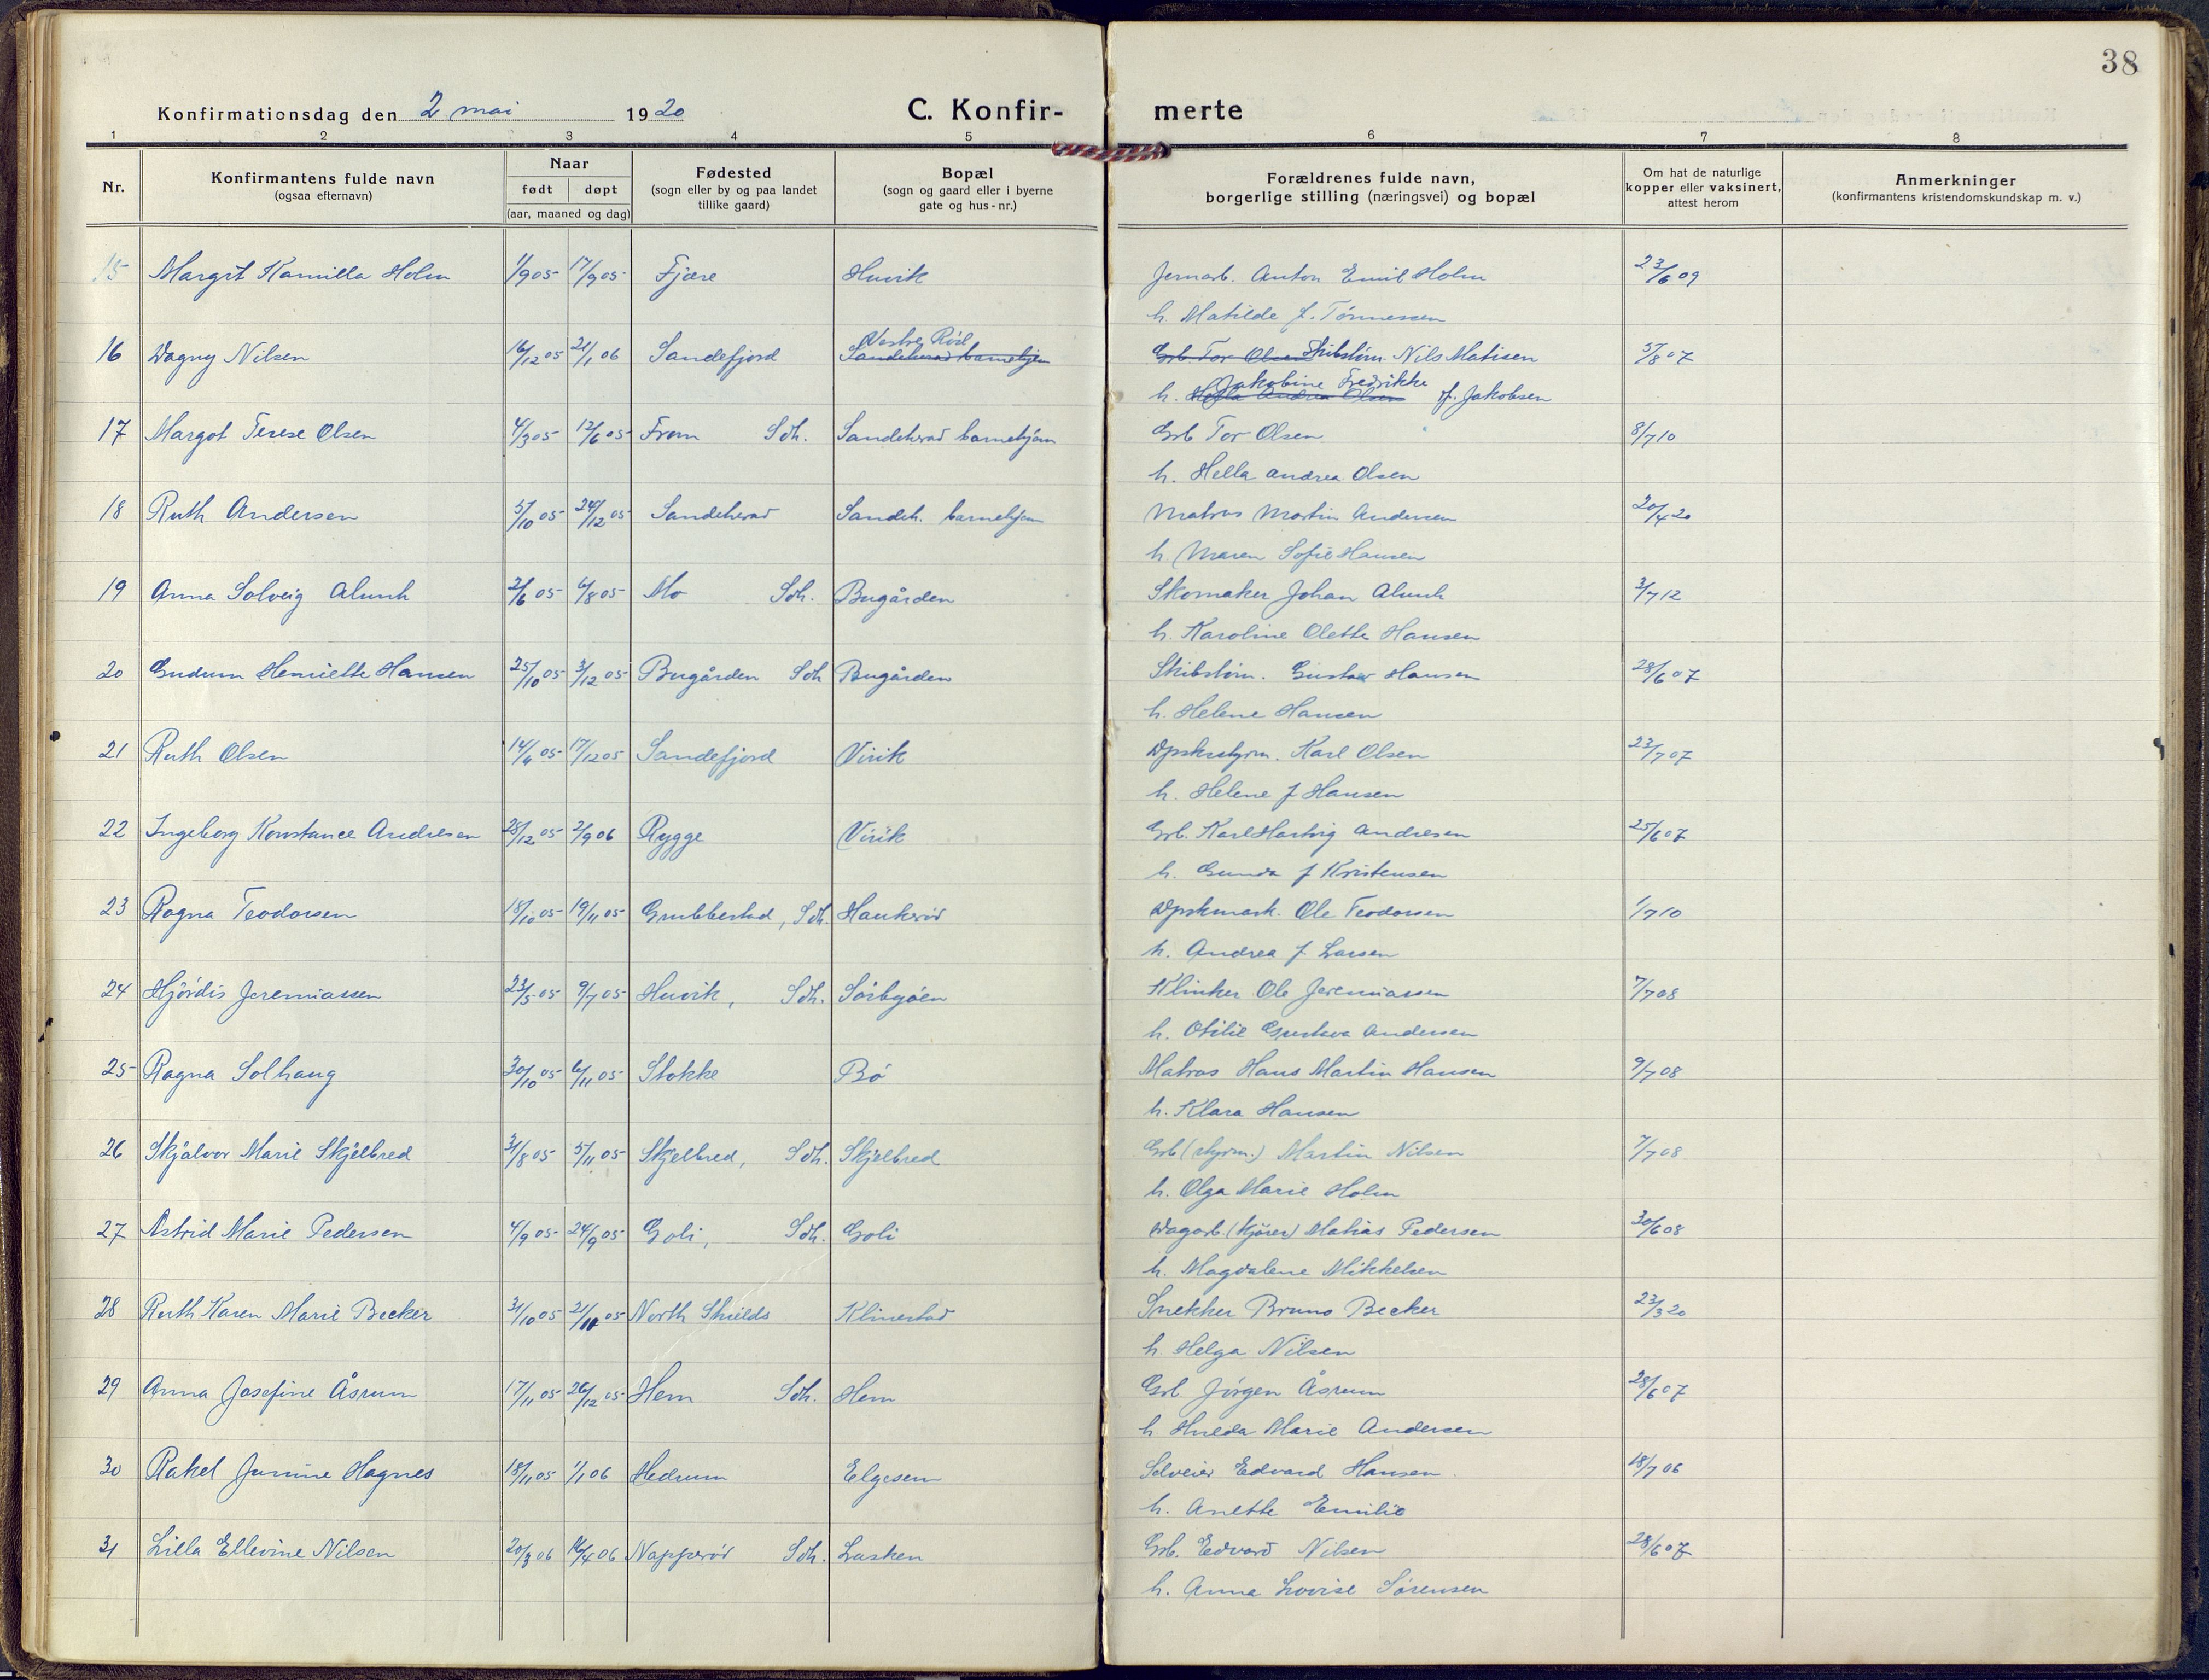 38
Konfirmationsdag den 2 mai 1920 C. Konfir- merte
1 2 3 4 5 6 7 8
Nr. Konfirmantens fulde navn (ogsaa efternavn) Naar født døpt (aar, maaned og dag) Fødested (sogn eller by og paa landet tillike gaard) Bopæl (sogn og gaard eller i byerne gate og hus-nr.) Forældrenes fulde navn, borgerlige stilling (næringsvei) og bopæl Om hat de naturlige kopper eller vaksinert, attest herom Anmerkninger (konfirmantens kristendomskundskap m. v.)
15 Margit Kamilla Holm 1/9 05 17/9 05 Fjære Huvik Jernarb. Anton Emil Holm 23/6 09
h. Matilde f. Tønnessen
Vestre Röd
16 Dagny Nilsen 16/12 05 21/1 06 Sandefjord Sandeherad barnehjem Grb. Tor Olsen Skibstøm. Nils Matisen 5/8 07
Jakobine Fredrikke
h. Hella Andrea Olsen f. Jakobsen
17 Margot Terese Olsen 4/3 05 12/6 05 Fram Sdh. Sandeherad barnehjem Grb Tor Olsen 8/7 10
h. Hella Andrea Olsen
18 Ruth Andersen 5/10 05 24/12 05 Sandeherad Sandeh. barnehjem Matros Martin Andersen 20/4 20
h. Maren Sofie Hansen
19 Anna Solveig Alunk 2/6 05 6/8 05 Mo Sdh. Bugården Skomaker Johan Alunk 3/7 12
h. Karoline Olette Hansen
20 Gudrun Henriette Hansen 25/10 05 3/12 05 Bugården Sdh Bugården Skibstøm. Gustav Hansen 28/6 07
h. Helene Hansen
21 Ruth Olsen 17/12 05 Sandefjord Virik Karl Olsen 23/7 07
h. Helene f Hansen
22 Ingeborg Konstance Andresen 28/12 05 2/9 06 Rygge Virik Grb. Karl Hartvig Andresen 25/6 07
h. Gunda f Kristensen
23 Ragna Teodorsen 18/10 05 19/11 05 Grubbestad, Sdh. Haukerød Dpskmask. Ole Teodorsen 1/7 10
h. Andrea f. Larsen
24 Hjördis Jeremiassen 23/5 05 9/7 05 Huvik, Sdh. Sörbyöen Klinker Ole Jeremiassen 7/7 08
h. Otilie Gustava Andersen
25 Ragna Solhaug 30/10 05 6/11 05 Stokke Bö Matros Hans Martin Hansen 9/7 08
h. Klara Hansen
26 Skjalvor Marie Skjelbred 31/8 05 5/11 05 Skjelbred, Sdh. Skjelbred Grb (styrm.) Martin Nilsen 7/7 08
h. Olga Marie Holm
27 Astrid Marie Pedersen 4/9 05 24/9 05 Goli, Sdh. Goli Dagarb. (kjører) Matias Pedersen 30/6 08
h. Magdalene Mikkelsen
28 Ruth Karen Marie Becker 31/10 05 05 North Shields Klinestad Snekker Bruno Becker 23/3 20
h. Helga Nilsen
29 Anna Josefine Åsrum 17/11 05 26/12 05 Hem Sdh. Hem Grb. Jörgen Åsrum 28/6 07
h Hulda Marie Andersen
30 Rakel Jumine Hagnes 18/11 05 1/1 06 Hedrum Elgesem Selveier Edvard Hansen 18/7 06
h. Anette Emilie
31 Lilla Ellevine Nilsen 20/3 06 16/4 06 Napperöd Sdh. Lasken Grb. Edvard Nilsen 28/6 07
h. Anna Lovise Sörensen